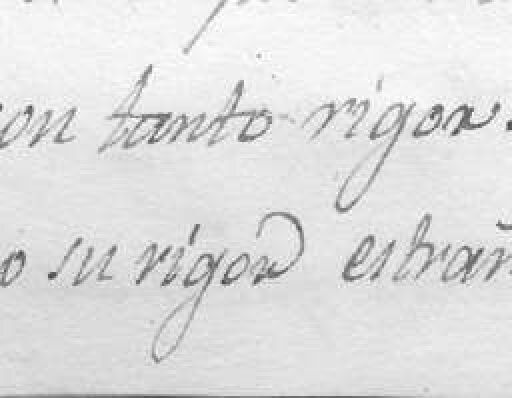 con tanto rigor.
o su rigor estrañ